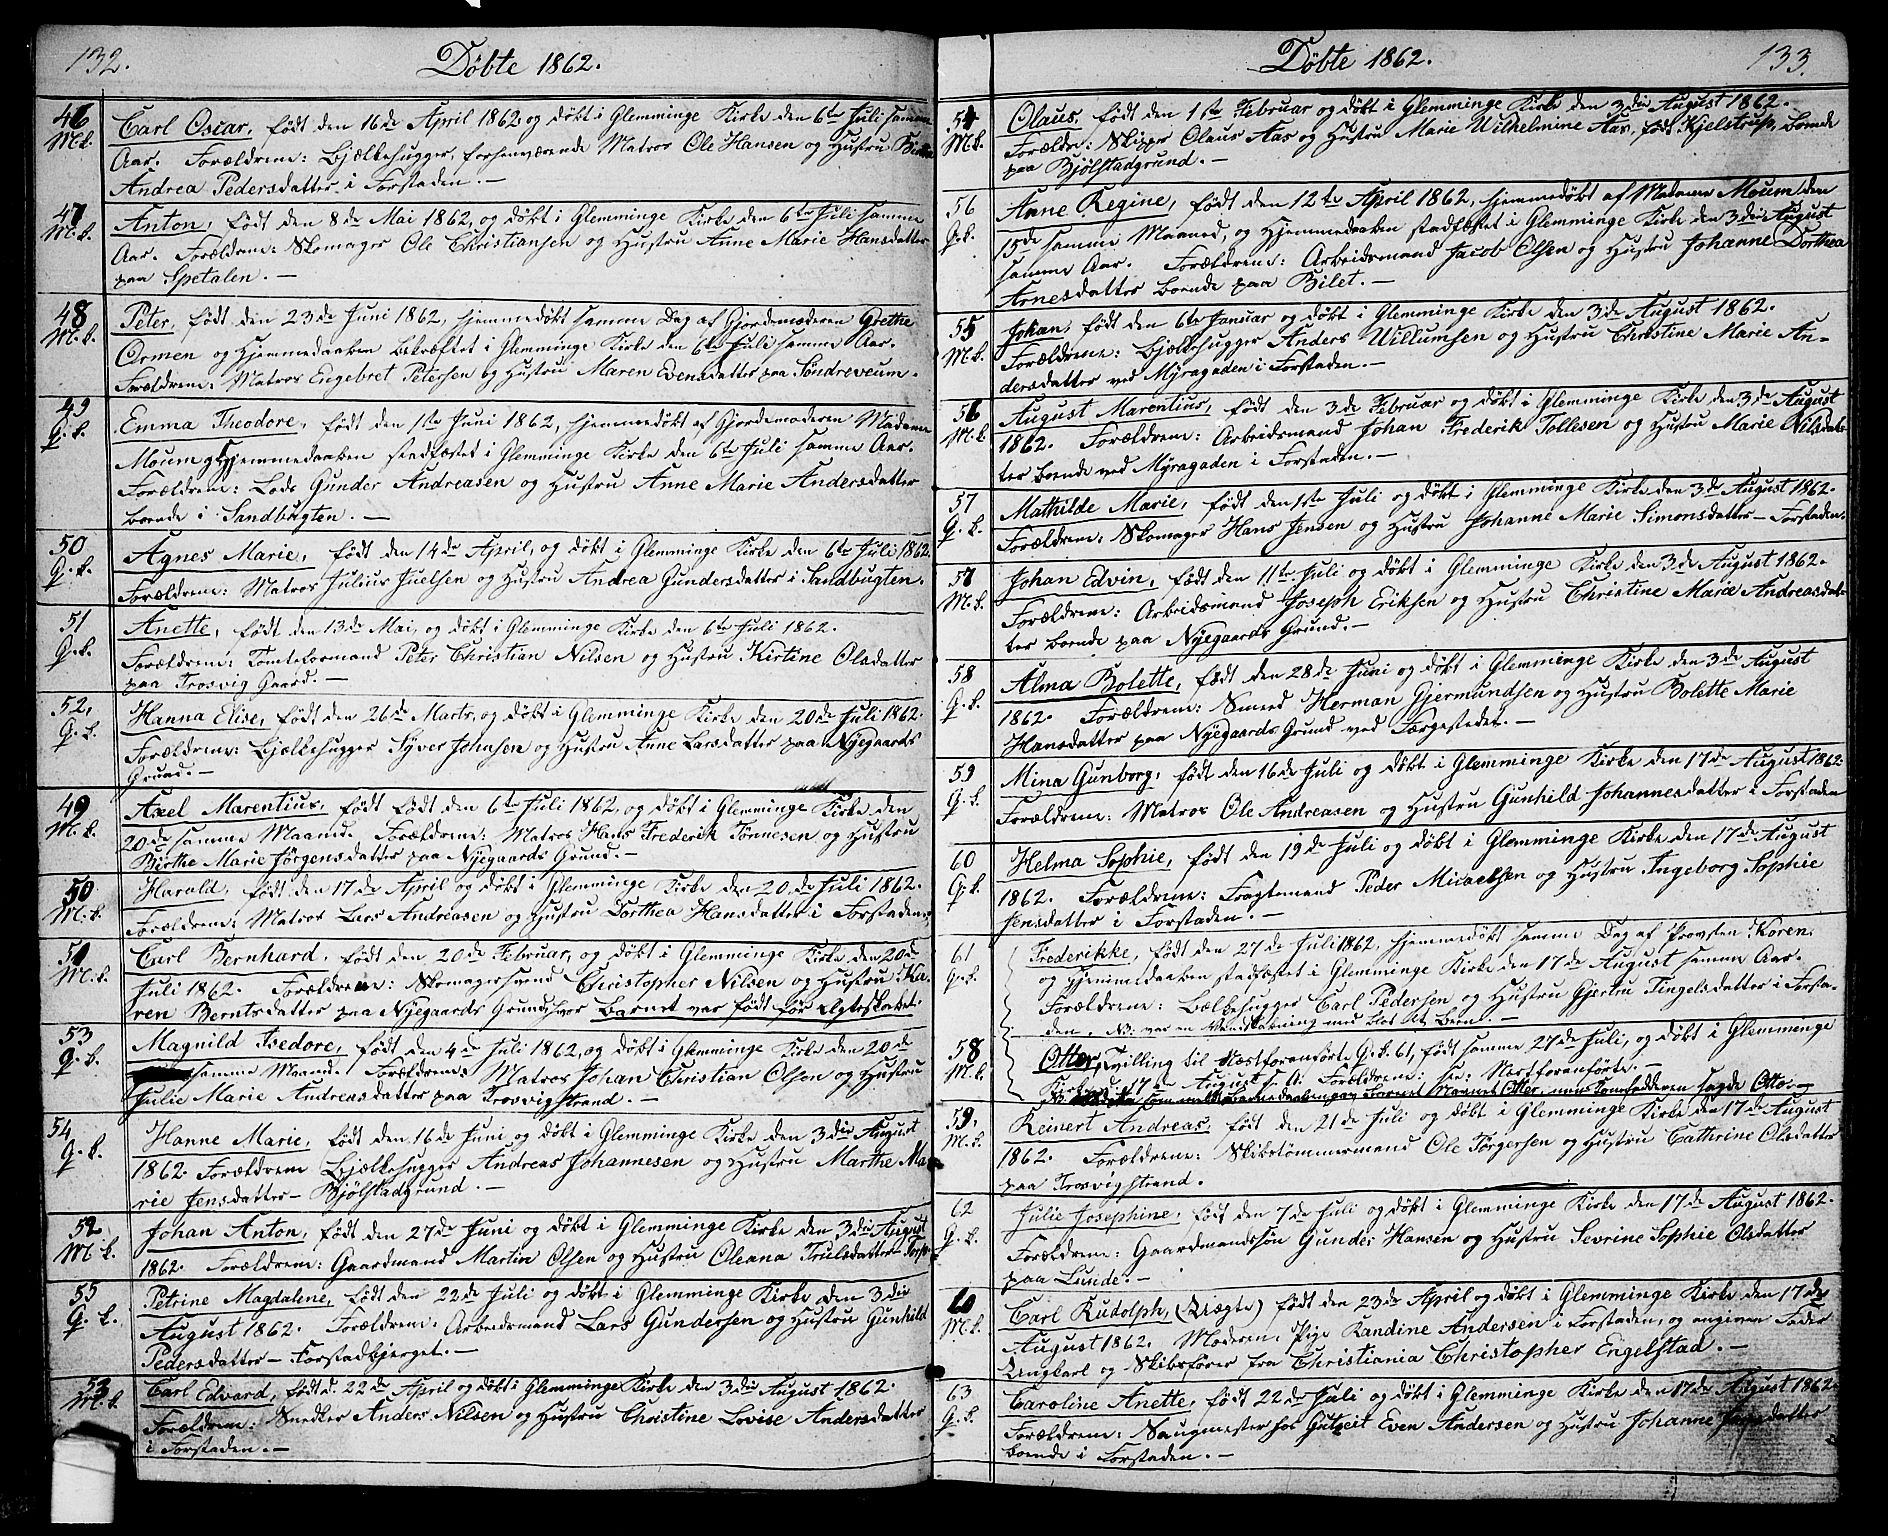 132.
Döbte 1862.
46 M.k. Carl Oscar, født den 16de April 1862 og døbt i Glemminge Kirke den 6te Juli samme
Aar. Forældrene: Bjælkehugger, forhenværende Matros Ole Hansen og Hustru
Andrea Pedersdatter i Forstaden. —
47 M.k. Anton, født den 8de Mai 1862, og døbt i Glemminge Kirke den 6te Juli samme
Aar. Forældrene: Skomager Ole Christiansen og Hustru Anne Marie Hansdatter
paa Spetalen. —
48 M.k. Peter, født den 23de Juni 1862, hjemmedøbt samme Dag af Gjordemoderen Grethe
Ormen og Hjemmedaaben bekræftet i Glemminge Kirke den 6te Juli samme Aar.
Forældrene: Matros Engebret Petersen og Hustru Maren Evensdatter paa Søndreveum.
49 Q.k. Emma Theodore, født den 1ste Juni 1862, hjemmedøbt af Gjordemoderen Madame
Moum og Hjemmedaaben stadfæstet i Glemminge Kirke den 6te Juli samme Aar.
Forældrene: Lods Gunder Andreasen og Hustru Anne Marie Andersdatter
boende i Sandbugten. —
50 Q.k. Agnes Marie, født den 14de April, og døbt i Glemminge Kirke den 6te Juli 1862.
Forældrene: Matros Julius Juelsen og Hustru Andrea Gundersdatter i Sandbugten.
51 Q.k. Anette, født den 13de Mai, og døbt i Glemminge Kirke den 6te Juli 1862.
Forældrene: Tomteformand Peter Christian Nilsen og Hustru Kirtine Olsdatter
paa Trosvig Gaard. —
52, Q.k. Hanna Elise, født den 26de Marts, og døbt i Glemminge Kirke den 20de Juli 1862.
Forældrene: Bjælkehugger Syver Johnsen og Hustru Anne Larsdatter paa Nyegaards
Grund. —
49 M.k. Axel Marentius, født født den 6te Juli 1862, og døbt i Glemminge Kirke den
20de samme Maaned. Forældrene: Matros Hans Frederik Tönnesen og Hustru
Birthe Marie Jörgensdatter paa Nyegaards Grund. —
50 M.k. Harald, født den 17de April og døbt i Glemminge Kirke den 20de Juli 1862.
Forældrene: Matros Lars Andreasen og Hustru Dorthea Hansdatter i Forstaden.
51 M.k. Carl Bernhard, født den 20de Februar, og døbt i Glemminge Kirke den 20de
Juli 1862. Forældrene: Skomagersvend Christopher Nilsen og Hustru Ka-
ren Berntsdatter paa Nyegaards Grund, hvor Barnet var født før Ægteskabet.
53 Q.k. Magnild Isedore, født den 4de Juli 1862, og døbt i Glemminge Kirke den 20de
samme Maaned. Forældrene: Matros Johan Christian Olsen og Hustru
Julie Marie Andreasdatter paa Trosvigstrand. —
54 Q.k. Hanne Marie, født den 16de Juni og døbt i Glemminge Kirke den 3die August
1862. Forældrene Bjælkehugger Andreas Johannesen og Hustru Marthe Ma-
rie Jensdatter – Bjölstadgrund. —
52 M.k. Johan Anton, født den 27de Juni og døbt i Glemminge Kirke den 3die August
1862. Forældrene: Gaardmand Martin Olsen og Hustru Oleana Trulsdatter
55 Q.k. Petrine Magdalene, født den 22de Juli og døbt i Glemminge Kirke den 3die
August 1862. Forældrene: Arbeidsmand Lars Gundersen og Hustru Gunhild
Pedersdatter – Forstadbjerget. —
53 M.k. Carl Edvard, født d. 22de April og døbt i Glemminge Kirke den 3die August 1862.
Forældrene: Snedker Anders Nilsen og Hustru Christine Lovise Andersdatter
i Forstaden. —
Döbte 1862.
133.
54 M.k. Olaus, født den 1ste Februar og døbt i Glemminge Kirke den 3die August 1862.
Forældre: Skipper Claus Aas og Hustru Marie Wilhelmine Aas, født Kjelstrup, boende
paa Bjölstadgrund. —
56 Q.k. Anne Regine, født den 12te April 1862, hjemmedøbt af Madame Moum den
15de samme Maaned, og Hjemmedaaben stadfæstet i Glemminge Kirke den 3die August
samme Aar. Forældrene: Arbeidsmand Jacob Olsen og Hustru Johanne Dorthea
Arnesdatter boende paa Bilet. —
55 M.k. Johan, født den 6te Januar og døbt i Glemminge Kirke den 3de August 1862.
Forældrene: Bjælkehugger Anders Willumsen og Hustru Christine Marie An-
dersdatter ved Myragaden i Forstaden. —
56 M.k. August Marentius, født den 3de Februar og døbt i Glemminge Kirke den 3de August
1862. Forældrene: Arbeidsmand Johan Frederik Tollesen og Hustru Marie Nilsdat-
ter boende ved Myragaden i Forstaden. —
57 Q.k. Mathilde Marie, født den 1ste Juli og døbt i Glemminge Kirke den 3de August 1862.
Forældrene: Skomager Hans Jensen og Hustru Johanne Marie Simonsdatter – Forstaden.
57 M.k. Johan Edvin, født den 11te Juli og døbt i Glemminge Kirke den 3de August 1862.
Forældrene: Arbeidsmand Joseph Eriksen og Hustru Christine Marie Andreasdat-
ter boende paa Nyegaards Grund. —
58 Q.k. Alma Bolette, født den 28de Juni og døbt i Glemminge Kirke den 3de August
1862. Forældrene: Smed Herman Gjermundsen og Hustru Bolette Marie
Hansdatter paa Nyegaards Grund ved Færgestedet. —
59 Q.k. Mina Gunborg, født den 16de Juli og døbt i Glemminge Kirke den 17de August 1862
Forældrene: Matros Ole Andreasen og Hustru Gunhild Johannesdatter i Forstaden
60 Q.k. Helma Sophie, født den 19de Juli og døbt i Glemminge Kirke den 17de August
1862. Forældrene: Fragtemand Peder Micaelsen og Hustru Ingeborg Sophie
Jensdatter i Forstaden. —
61 Q.k. Frederikke, født den 27de Juli 1862, hjemmedøbt samme Dag af Provsten Koren
og Hjemmedaaben stadfæstet i Glemminge Kirke den 17de August samme Aar.
Forældrene: Bælkehugger Carl Pedersen og Hustru Gjertru Tingelsdatter i Forsta-
den.
58 M.k. Otter, Tvilling til Næstforanførte Q.k. 61, født samme 27de Juli, og døbt i Glemminge
Kirke d. 17de August s. A. Forældrene: see: Næstforanførte. —
Barnet Navnet Otter, men sagde Otto.
59, M.k. Reinert Andreas, født den 21de Juli og døbt i Glemminge Kirke den 17de August
1862. Forældrene: Skibstömmermand Ole Törgersen og Hustru Cathrine Olsdatter
paa Trosvigstrand.
62 Q.k. Julie Josephine, født den 7de Juli og døbt i Glemminge Kirke den 17de August 1862.
Forældrene: Gaardmandssön Gunder Hansen og Hustru Sevrine Sophie Olsdatter
paa Lunde. —
60 M.k. Carl Rudolph, (Uægte) født den 23de April og døbt i Glemminge Kirke den 17de
August 1862. Moderen: Pige Kandine Andersen i Forstaden, og angiven Fader
Ungkarl og Skibsfører fra Christiania Christopher Engelstad. —
63 Q.k. Caroline Anette, født 22de Juli og døbt i Glemminge Kirke den 17de August 1862.
Forældrene: Saugmester hos Gutzeit Even Andersen og Hustru Johanne
boende i Forstaden. —